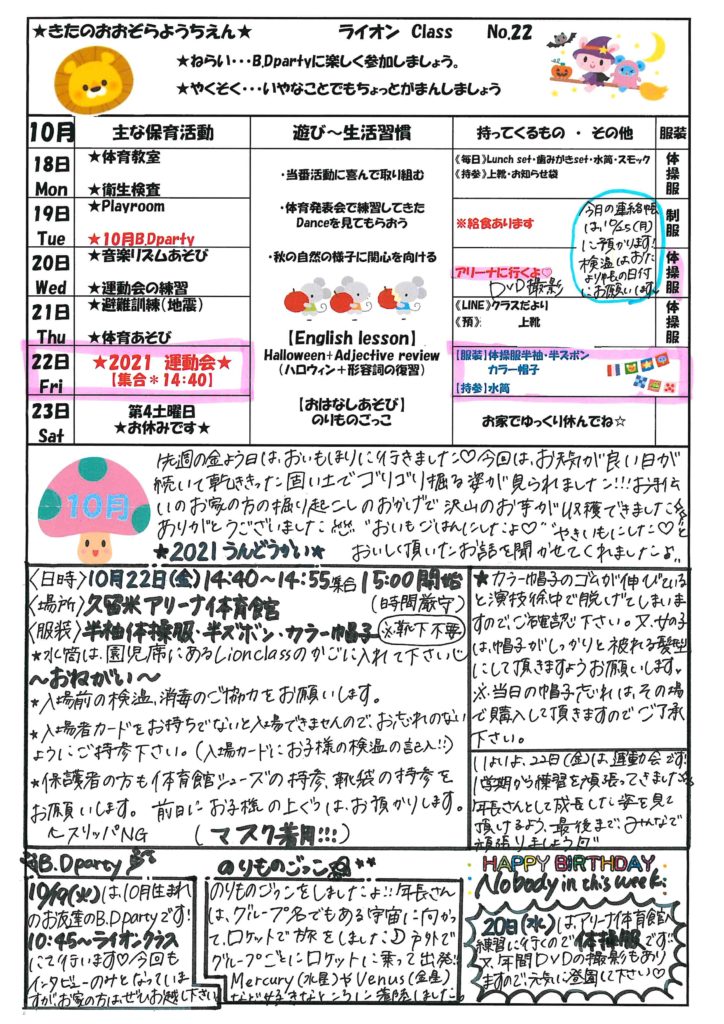 ★きたのおおぞらようちえん★ ライオン Class No.22
★ねらい・・・B.Dpartyに楽しく参加しましょう。
★やくそく・・・いやなことでもちょっとがまんしましょう
10月 主な保育活動 遊び～生活習慣 持ってくるもの ・ その他 服装
18日 Mon
★体育教室
★衛生検査
《毎日》Lunch set・歯みがきset・水筒・スモック
《持参》上靴・お知らせ袋
体操服
19日 Tue
★Playroom
★10月B.Dparty
※給食あります
制服
20日 Wed
★音楽リズムあそび
★運動会の練習
アリーナに行くよ♡
DVD撮影
体操服
今日の連絡帳
は、10/25(月)
に預かります!
検温はおた
より帳の日付
にお願いします。
21日 Thu
★避難訓練(地震)
★体育あそび
《LINE》クラスだより
《預》 上靴
体操服
22日 Fri
★2021 運動会★
【集合＊14:40】
【服装】体操服半袖・半スボン
カラー帽子
【持参】水筒
23日 Sat
第4土曜日
★お休みです★
お家でゆっくり休んでね☆
・当番活動に喜んで取り組む
・体育発表会で練習してきた
Danceを見てもらおう
・秋の自然の様子に関心を向ける
【English lesson】
Halloween+Adjective review
(ハロウィン＋形容詞の復習)
【おはなしあそび】
のりものごっこ
10月
先週の金よう日は、おいもほりに行きました♡今回は、お天気が良い日が
続いて乾ききった固い土でゴリゴリ掘る姿が見られました!!!お手伝
いのお家の方の掘り起こしのおかげで沢山のお芋が収穫できました
ありがとうございました "おいもごはんにしたよ♡" "やきいもにした♡"と
おいしく頂いたお話を聞かせてくれましたよ。
★2021うんどうかい★
〈日時〉10月22日(金)14:40～14:55集合 15:00開始
〈場所〉久留米アリーナ体育館 (時間厳守)
〈服装〉半袖体操服・半ズボン・カラー帽子 ※靴下不要
★水筒は、園児席にあるLionclassのかごに入れて下さい
～おねがい～
★入場前の検温、消毒のご協力をお願いします。
★入場者カードをお持ちでないと入場できませんので、お忘れのない
ようにご持参下さい。(入場カードにお子様の検温の記入!!)
★保護者の方も体育館シューズの持参、靴袋の持参を
お願いします。 前日にお子様の上ぐつは、お預かりします。
スリッパNG (マスク着用!!!)
★カラー帽子のゴムが伸びている
と演技途中で脱げてしまいま
すのでご確認下さい。又、女の子
は、帽子がしっかりと被れる髪型
にして頂きますようお願いします。
※当日の帽子忘れは、その場
で購入して頂きますのでご了承
下さい。
いよいよ、22日(金)は、運動会です!
1学期から練習を頑張ってきました
年長さんとして成長している姿を見て
頂けるよう、最後まで、みんなで
頑張りましょう
B.Dparty
10/19(火)は、10月生まれ
のお友達のB.Dpartyです!
10:45～ライオンクラス
にて行います♡今回も
インタビューのみとなっていま
すがお家の方は、ぜひお越し下さい
のりものごっこ
のりものごっこをしましたよ!!年長さん
は、グループ名でもある宇宙に向かっ
て、ロケットで旅をしました 戸外で
グループごとにロケットに乗って出発!!
Mercury(水星)やVenus(金星)
など好きなところに着陸しました。
HAPPY BIRTHDAY
Nobody in this week.
20日(水)は、アリーナ体育館へ
練習に行くので体操服です
又、年間DVDの撮影もあり
ますので、元気に登園して下さい♡